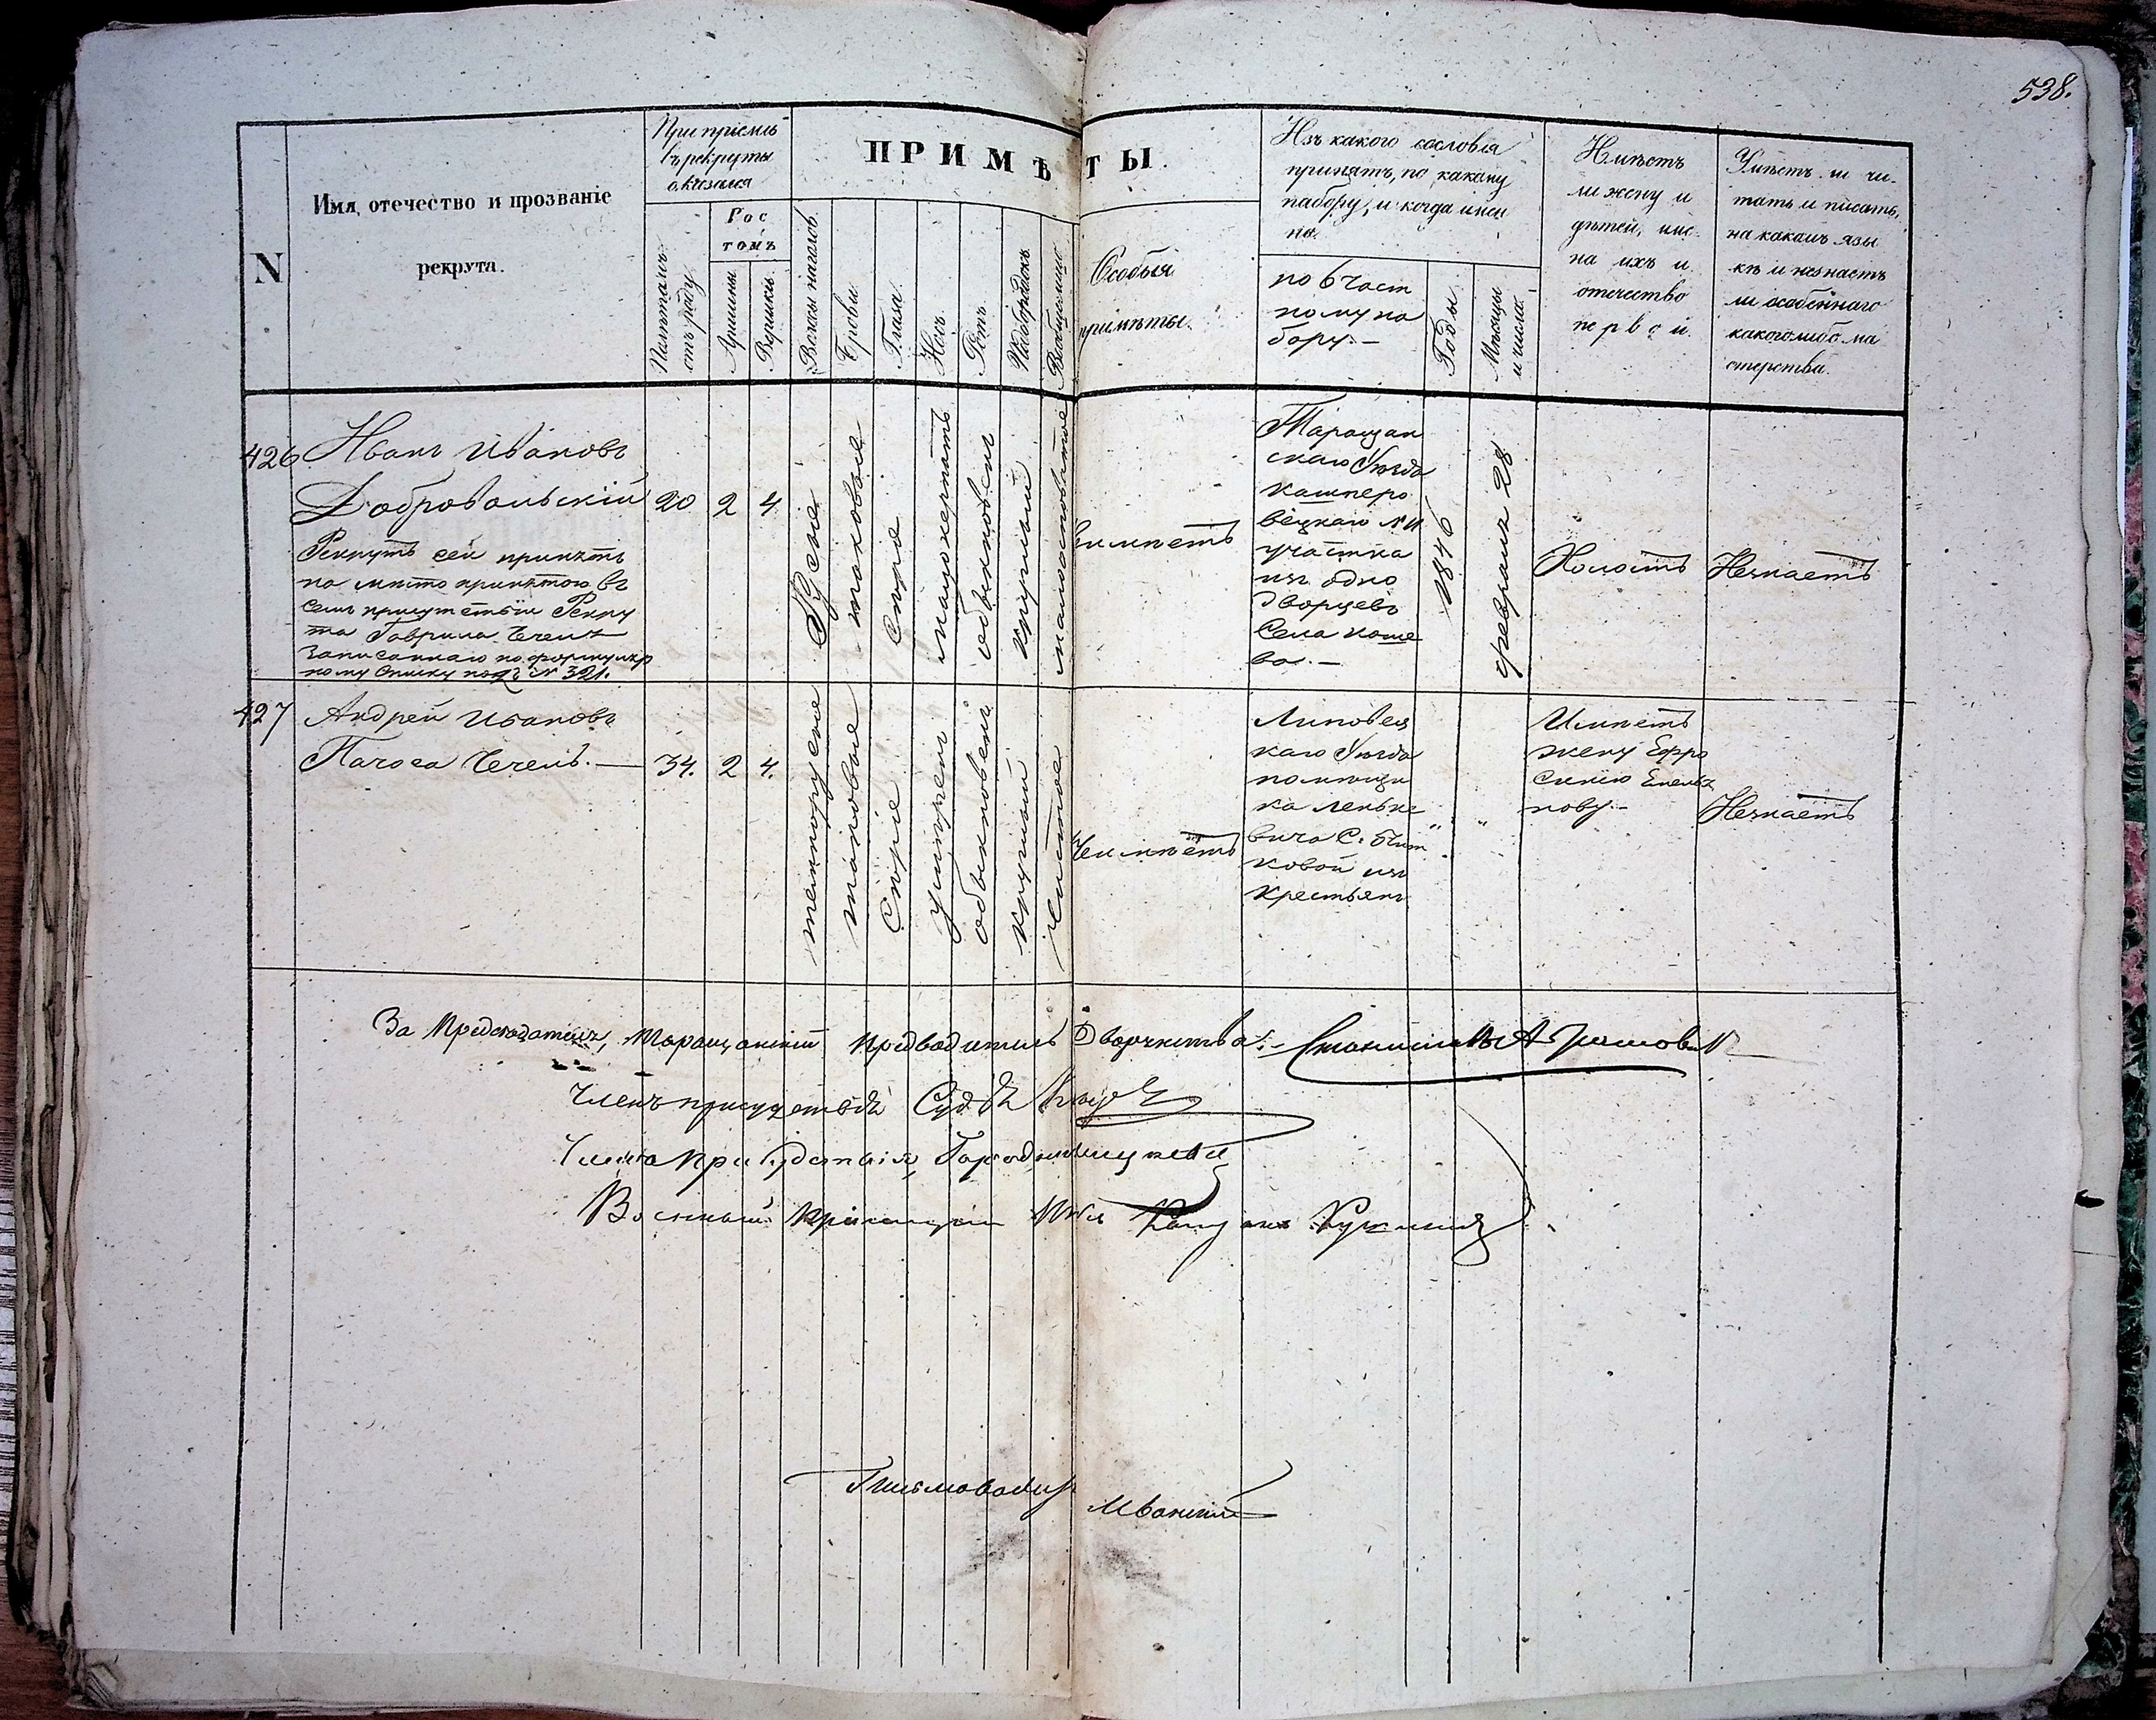 538.
N
Имя, отечество и прозваніе
рекрута.
При пріемѣ
въ рекруты
оказался
Лѣтами
отъ роду
Рос
томъ
Аршины
Вершки
ПРИМѢТЫ.
Волосы на голов.
Брови
Глаза
Носъ
Ротъ
Подбородокъ
Вообще лицо
Особыя
примѣты.
Изъ какого сословія
принятъ, по какому
набору, и когда имен
но.
по 6 част
ному на
бору.—
Годы
Мѣсяцы
и числа.
Имѣетъ
ли жену и
дѣтей, име-
на ихъ и
отечество
первой.
Умѣетъ ли чи-
тать и писать,
на какомъ язы
кѣ и не знаетъ
ли особеннаго
какого либо ма
стерства.
426
Иванъ Ивановъ
Добровольскій
Рекрутъ сей принятъ
на мѣсто принятого въ
семъ присутствіи Рекру
та Гаврила Чечелъ
записаннаго по формуляр
ному списку подъ № 321.
20
2
4
Русые
таковые
Серые
обыкновен
круглый
Неимѣетъ
Таращан
скаго Уѣзда
кашперо
вецкаго №
участка
изъ одно
дворцевъ
Села каше
ва.—
1846
февраля 28
Холостъ
Незнаетъ
427
Андрей Ивановъ
Чечель.—
34.
2
4.
темнорусые
таковые
Серые
умѣрен
обыкновенъ
круглый
чистое
Неимѣетъ
Липовец
каго Уѣзда
помѣщи
ка Ленке
вича С.
ковой изъ
крестьянъ
"
"
Имѣетъ
жену Ефро
синію Емелья
нову.—
Незнаетъ
За Предсѣдателя, Таращанскій предводитель Дворянства:
Членъ присутствія Судья
Членъ присутствія, Городничій
Военный пріемщикъ
Письмоводит Иванскій